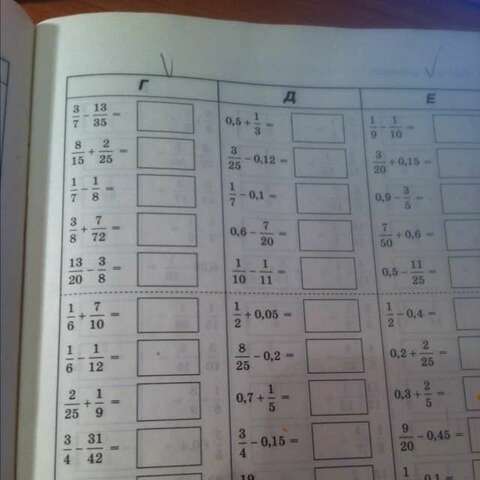 Г Д Е
3/7 − 13/35 = 0,5 + 1/3 = 1/9 − 1/10 =
8/15 + 2/25 = 3/25 − 0,12 = 3/20 + 0,15 =
1/7 − 1/8 = 1/7 − 0,1 = 0,9 − 3/5 =
3/8 + 7/72 = 0,6 − 7/20 = 7/50 + 0,6 =
13/20 − 3/8 = 1/10 − 1/11 = 0,5 − 11/25 =
1/6 + 7/10 = 1/2 + 0,05 = 1/2 − 0,4 =
1/6 − 1/12 = 8/25 − 0,2 = 0,2 + 2/25 =
2/25 + 1/9 = 0,7 + 1/5 = 0,3 + 2/5 =
3/4 − 31/42 = 3/4 − 0,15 = 9/20 − 0,45 =